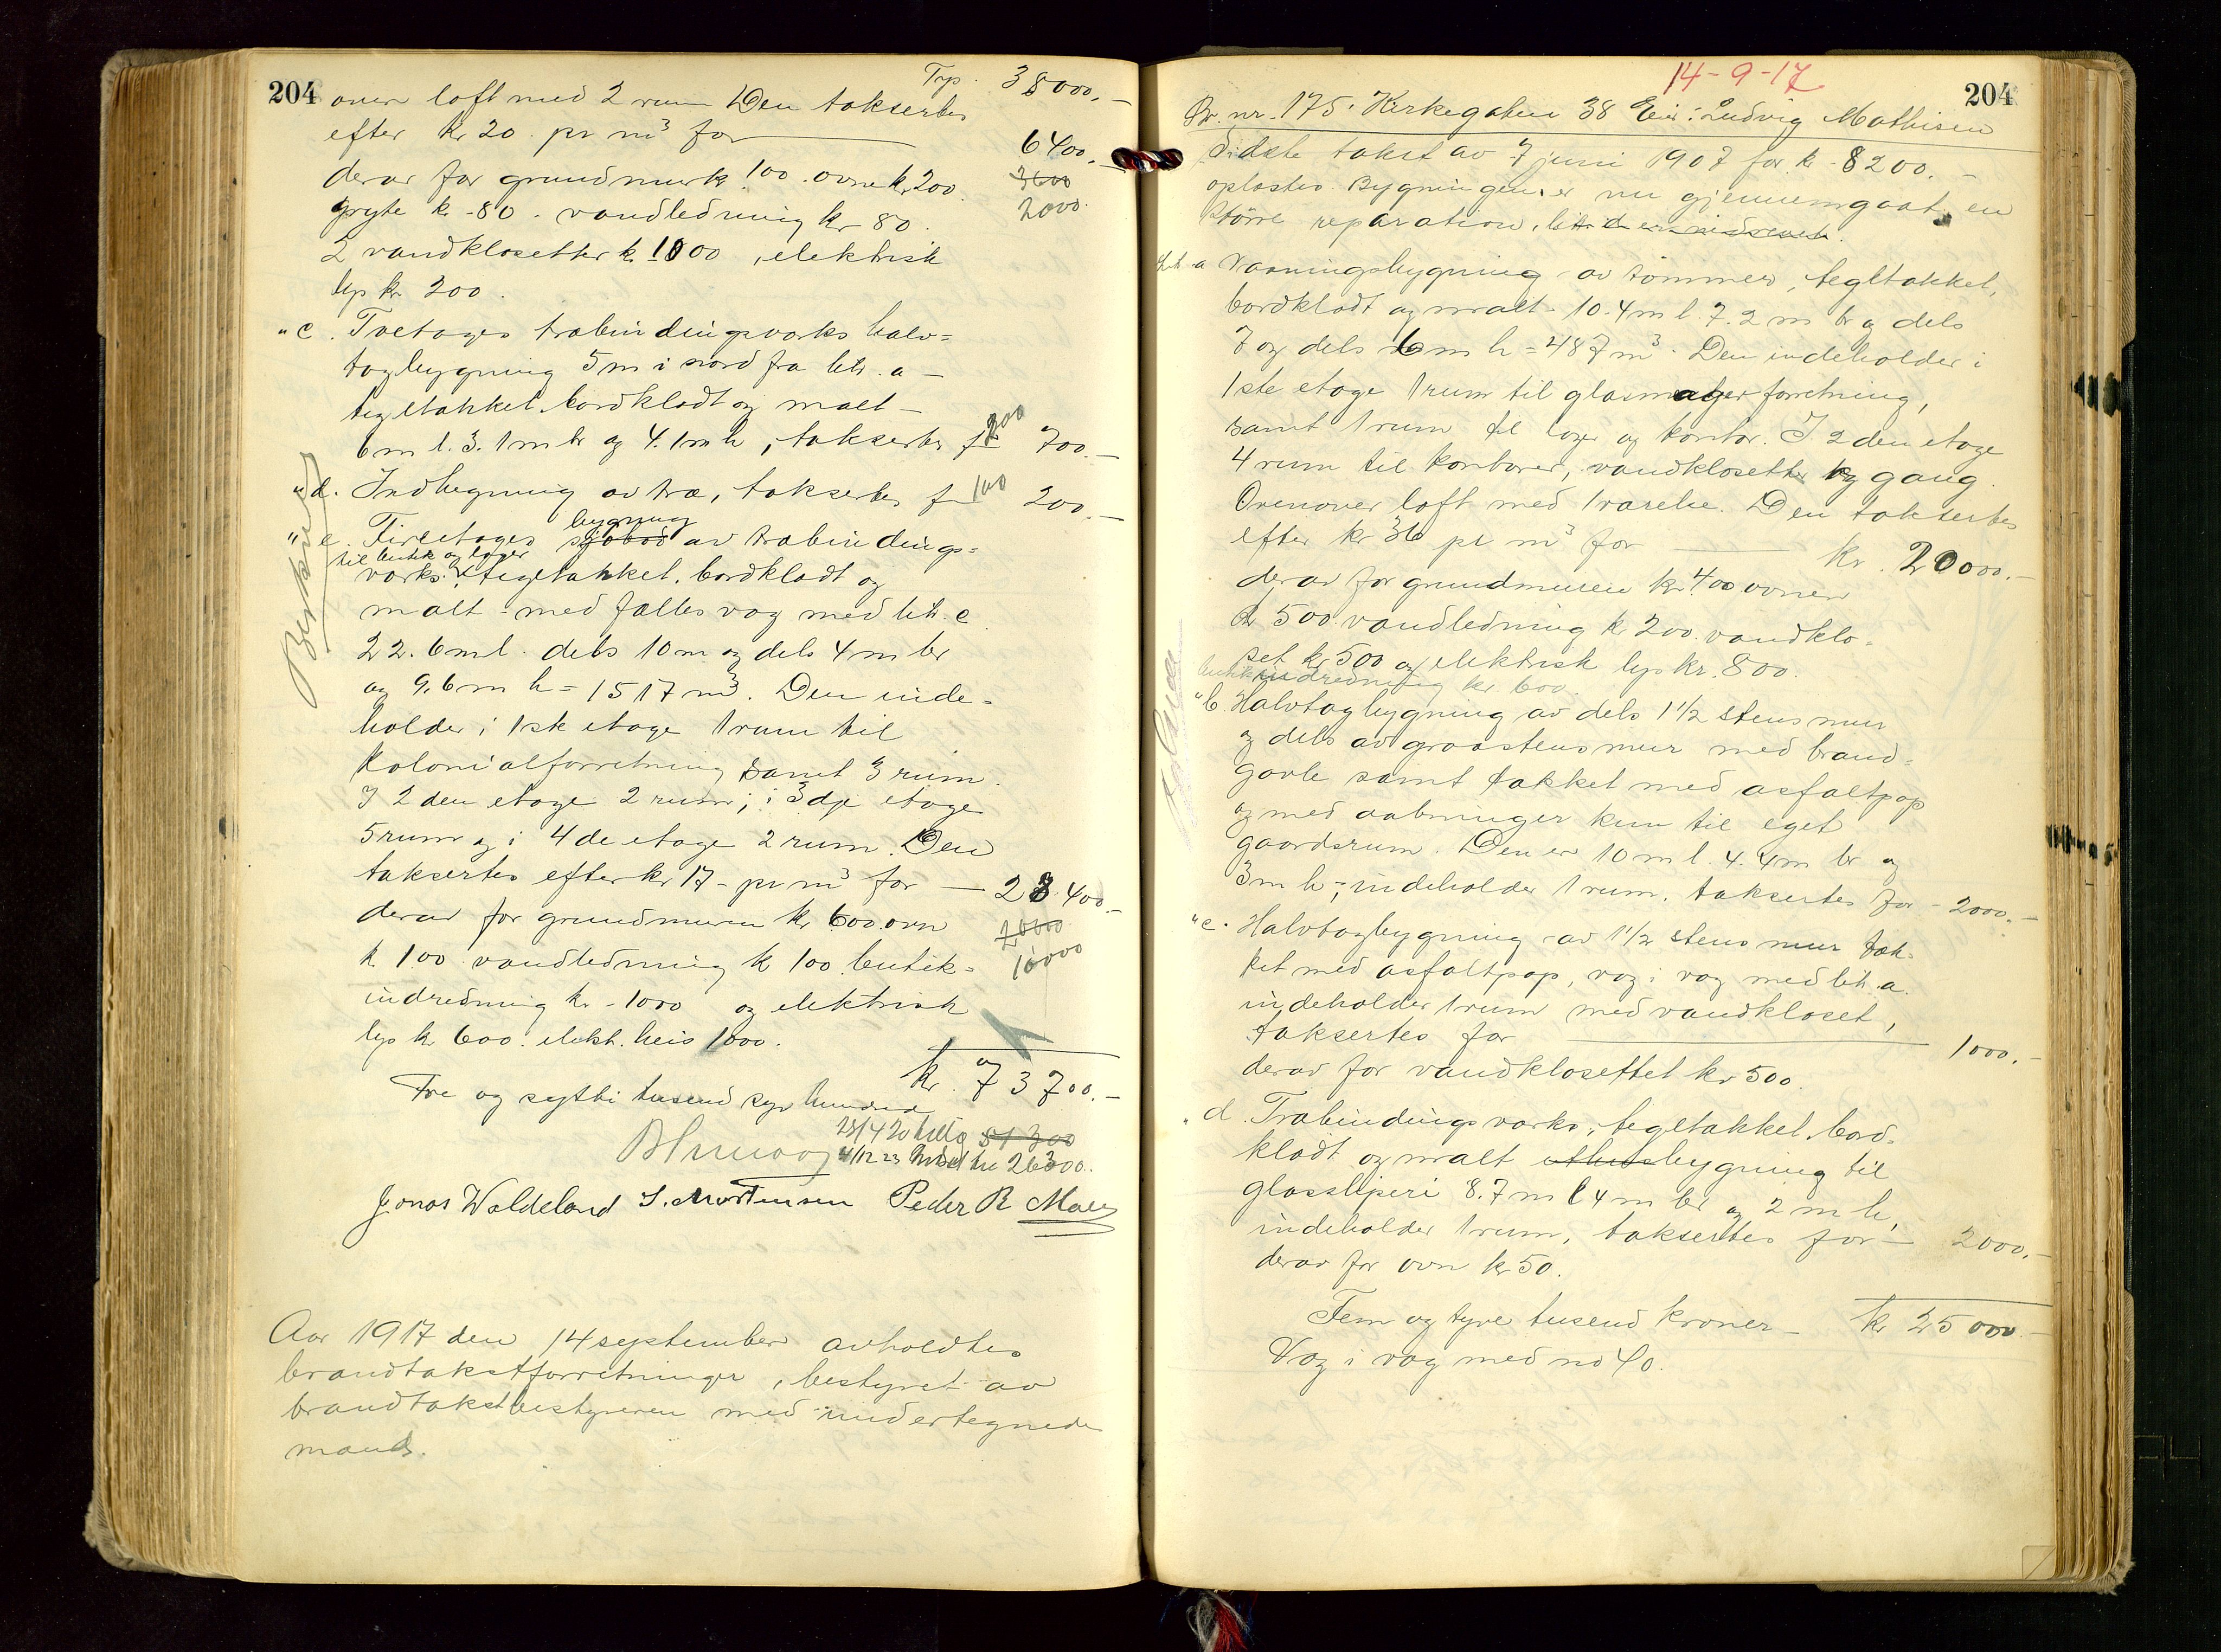 204
Trp. 38000.-
over loft med 2 rum Den taksertes
efter kr 20 pr m³ for 6400.-
derav for grundmur k. 100. ovne kr. 200. 3600
gryte kr. 80. vandledning kr 80. 2000.
2 vandklosetter k. 1000, elektrisk
lys kr. 200.
"c. Toetages træbindingsværks halv=
tagbygning 5 m i nord fra litr. a -
tegltækket, bordklædt og malt -
6 m l. 3.1 m br og 4.1 m h, takserter for 200 700.-
"d. Indhegning av træ, taksertes for 100 200.-
"e. Fireetages sjøbod bygning av træbindings=
til butik og lager
værks. tegltækket, bordklædt og
malt - med fælles væg med litr. c
22.6 m l. dels 10 m og dels 4 m br
og 9.6 m h = 1517 m³. Den inde=
holder i 1ste etage 1 rum til
kolonialforretning samt 3 rum.
I 2den etage 2 rum; i 3dje etage
5 rum og i 4de etage 2 rum. Den
taksertes efter kr 17- pr m³ for - 28400.-
derav for grundmuren kr. 600. ovn 20000
k. 100 vandledning k 100. butik= 16000
indredning kr. 1000 og elektrisk
lys kr 600. elekt. heis 1000.
kr. 73700.-
Tre og sytti tusend syv hundred
28/4 20 51300
4/12 23 26300.
Jonas Waldeland S. Mortensen Peder R
Aar 1917 den 14 september avholdtes
brandtakstforretninger, bestyret av
brandtakstbestyreren med undertegnede
mænd.
14-9-17
204
Br. nr. 175. Kirkegaten 38 Eier: Ludvig Mathisen
Sidste takst av 7 juni 1907 for k. 8200.-
opløstes. Bygningen er nu gjennemgaat en
større reparation, litr. d er nedrevet.
Litr. a Vaaningsbygning av tømmer, tegltækket,
bordklædt og malt - 10.4 m l. 7.2 m br og dels
7 og dels 6 m h = 487 m³. Den indeholder i
1ste etage 1 rum til glasmagerforretning,
samt 1 rum til lager og kontor. I 2den etage
4 rum til kontorer, vandklosetter og gang.
Ovenover loft med 1 værelse. Den taksertes
efter kr 36 pr m³ for kr. 20000.-
derav for grundmuren kr 400 ovner
kr 500 vandledning k 200. vandklo=
set kr 500 og elektrisk lys kr. 800.
butikindredning kr. 600.
"b. Halvtagbygning av dels 1 1/2 stens mur
og dels av graastensmur med brand=
gavle samt tækket med asfaltpap
og med aabninger kun til eget
gaardsrum. Den er 10 m l. 4.4 m br og
3 m h -, indeholder 1 rum, taksertes for - 2000.-
"c. Halvtagbygning av 1 1/2 stens mur tæk=
ket med asfaltpap, væg i væg med litr. a.
indeholder 1 rum med vandkloset,
taksertes for 1000.-
derav for vandklosettet kr 500.
"d. Træbindingsværks, tegltækket, bord=
klædt og malt uthusbygning til
glassliperi 8.7 m l 4 m br og 2 m h,
indeholder 1 rum, taksertes for - 2000.-
derav for ovn kr 50.
Fem og tyve tusend kroner - kr 25000.-
Væg i væg med no 40.